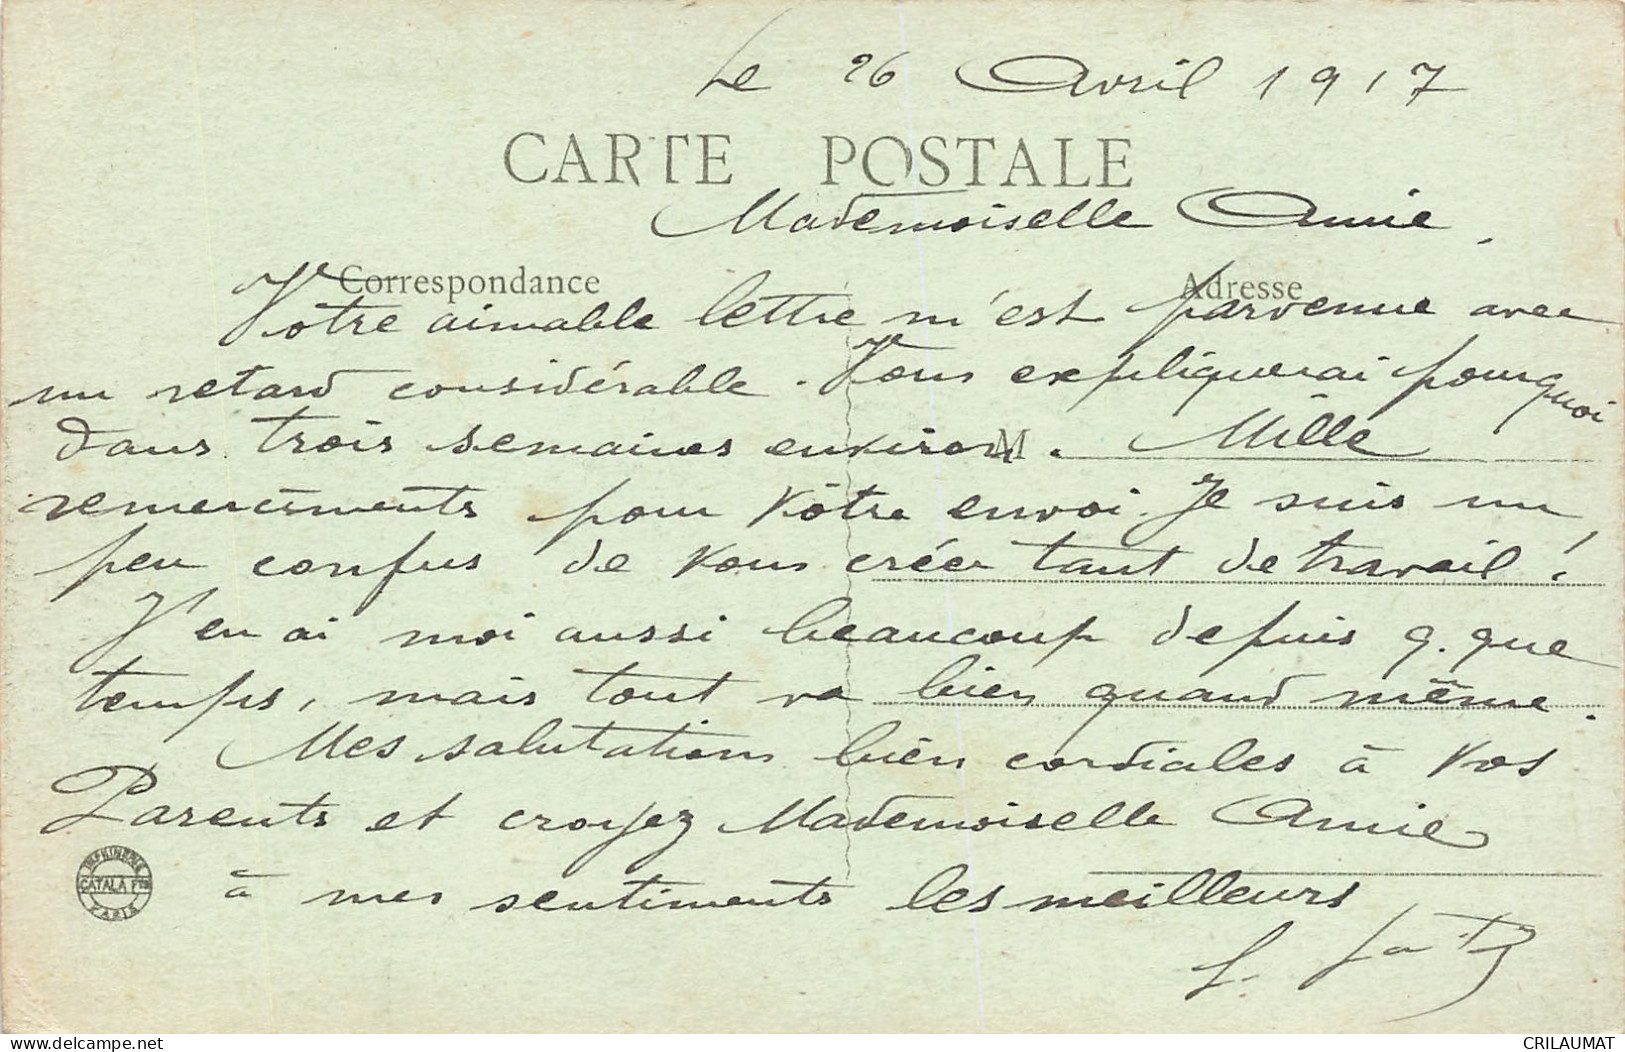 Le 26 Avril 1917
CARTE POSTALE
Mademoiselle Annie,
Correspondance
Adresse
Votre aimable lettre m'est parvenue avec
un retard considérable. Vous expliquerai pourquoi
dans trois semaines environ. Mille
M
remerciements pour vôtre envoi. Je suis un
peu confus de vous créer tant de travail !
J'en ai moi aussi beaucoup depuis q. que
temps, mais tout va bien quand même.
Mes salutations bien cordiales à vos
Parents et croyez Mademoiselle Annie
à mes sentiments les meilleurs
IMPRIMERIE
CATALA Fres
PARIS
delcampe.net
CRILAUMAT